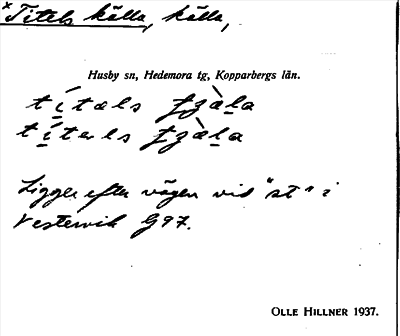 *Titels källa, källa,
Husby sn, Hedemora tg, Kopparbergs län.
Ligger efter vägen vid "st" i
Vestervik G97.
OLLE HILLNER 1937.